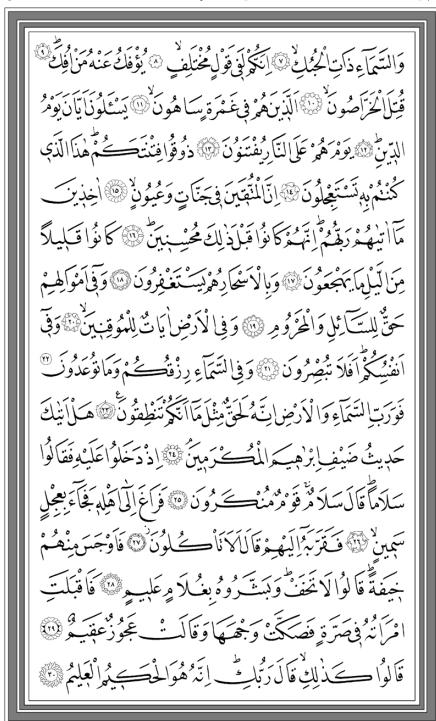 وَالسَّمَٓاءِ ذَاتِ الْحُبُكِۙ ﴿٧﴾ اِنَّكُمْ لَفٖي قَوْلٍ مُخْتَلِفٍۙ ﴿٨﴾ يُؤْفَكُ عَنْهُ مَنْ اُفِكَۜ ﴿٩﴾
قُتِلَ الْخَرَّاصُونَۙ ﴿١٠﴾ اَلَّذٖينَ هُمْ فٖي غَمْرَةٍ سَاهُونَۙ ﴿١١﴾ يَسْـَٔلُونَ اَيَّانَ يَوْمُ
الدّٖينِۜ ﴿١٢﴾ يَوْمَ هُمْ عَلَى النَّارِ يُفْتَنُونَ ﴿١٣﴾ ذُوقُوا فِتْنَتَكُمْۜ هٰذَا الَّذٖي
كُنْتُمْ بِهٖ تَسْتَعْجِلُونَ ﴿١٤﴾ اِنَّ الْمُتَّقٖينَ فٖي جَنَّاتٍ وَعُيُونٍۙ ﴿١٥﴾ اٰخِذٖينَ
مَٓا اٰتٰيهُمْ رَبُّهُمْۜ اِنَّهُمْ كَانُوا قَبْلَ ذٰلِكَ مُحْسِنٖينَۜ ﴿١٦﴾ كَانُوا قَلٖيلاً
مِنَ الَّيْلِ مَا يَهْجَعُونَ ﴿١٧﴾ وَبِالْاَسْحَارِ هُمْ يَسْتَغْفِرُونَ ﴿١٨﴾ وَفٖٓي اَمْوَالِهِمْ
حَقٌّ لِلسَّٓائِلِ وَالْمَحْرُومِ ﴿١٩﴾ وَفِي الْاَرْضِ اٰيَاتٌ لِلْمُوقِنٖينَۙ ﴿٢٠﴾ وَفٖٓي
اَنْفُسِكُمْۜ اَفَلَا تُبْصِرُونَ ﴿٢١﴾ وَفِي السَّمَٓاءِ رِزْقُكُمْ وَمَا تُوعَدُونَ ﴿٢٢﴾
فَوَرَبِّ السَّمَٓاءِ وَالْاَرْضِ اِنَّهُ لَحَقٌّ مِثْلَ مَٓا اَنَّكُمْ تَنْطِقُونَ۟ ﴿٢٣﴾ هَلْ اَتٰيكَ
حَدٖيثُ ضَيْفِ اِبْرٰهٖيمَ الْمُكْرَمٖينَۢ ﴿٢٤﴾ اِذْ دَخَلُوا عَلَيْهِ فَقَالُوا
سَلَاماًۜ قَالَ سَلَامٌۚ قَوْمٌ مُنْكَرُونَ ﴿٢٥﴾ فَرَاغَ اِلٰٓى اَهْلِهٖ فَجَٓاءَ بِعِجْلٍ
سَمٖينٍۙ ﴿٢٦﴾ فَقَرَّبَهُٓ اِلَيْهِمْ قَالَ اَلَا تَأْكُلُونَۘ ﴿٢٧﴾ فَاَوْجَسَ مِنْهُمْ
خٖيفَةًۜ قَالُوا لَا تَخَفْۜ وَبَشَّرُوهُ بِغُلَامٍ عَلٖيمٍ ﴿٢٨﴾ فَاَقْبَلَتِ
امْرَاَتُهُ فٖي صَرَّةٍ فَصَكَّتْ وَجْهَهَا وَقَالَتْ عَجُوزٌ عَقٖيمٌ ﴿٢٩﴾
قَالُوا كَذٰلِكِۙ قَالَ رَبُّكِۜ اِنَّهُ هُوَ الْحَكٖيمُ الْعَلٖيمُ ﴿٣٠﴾